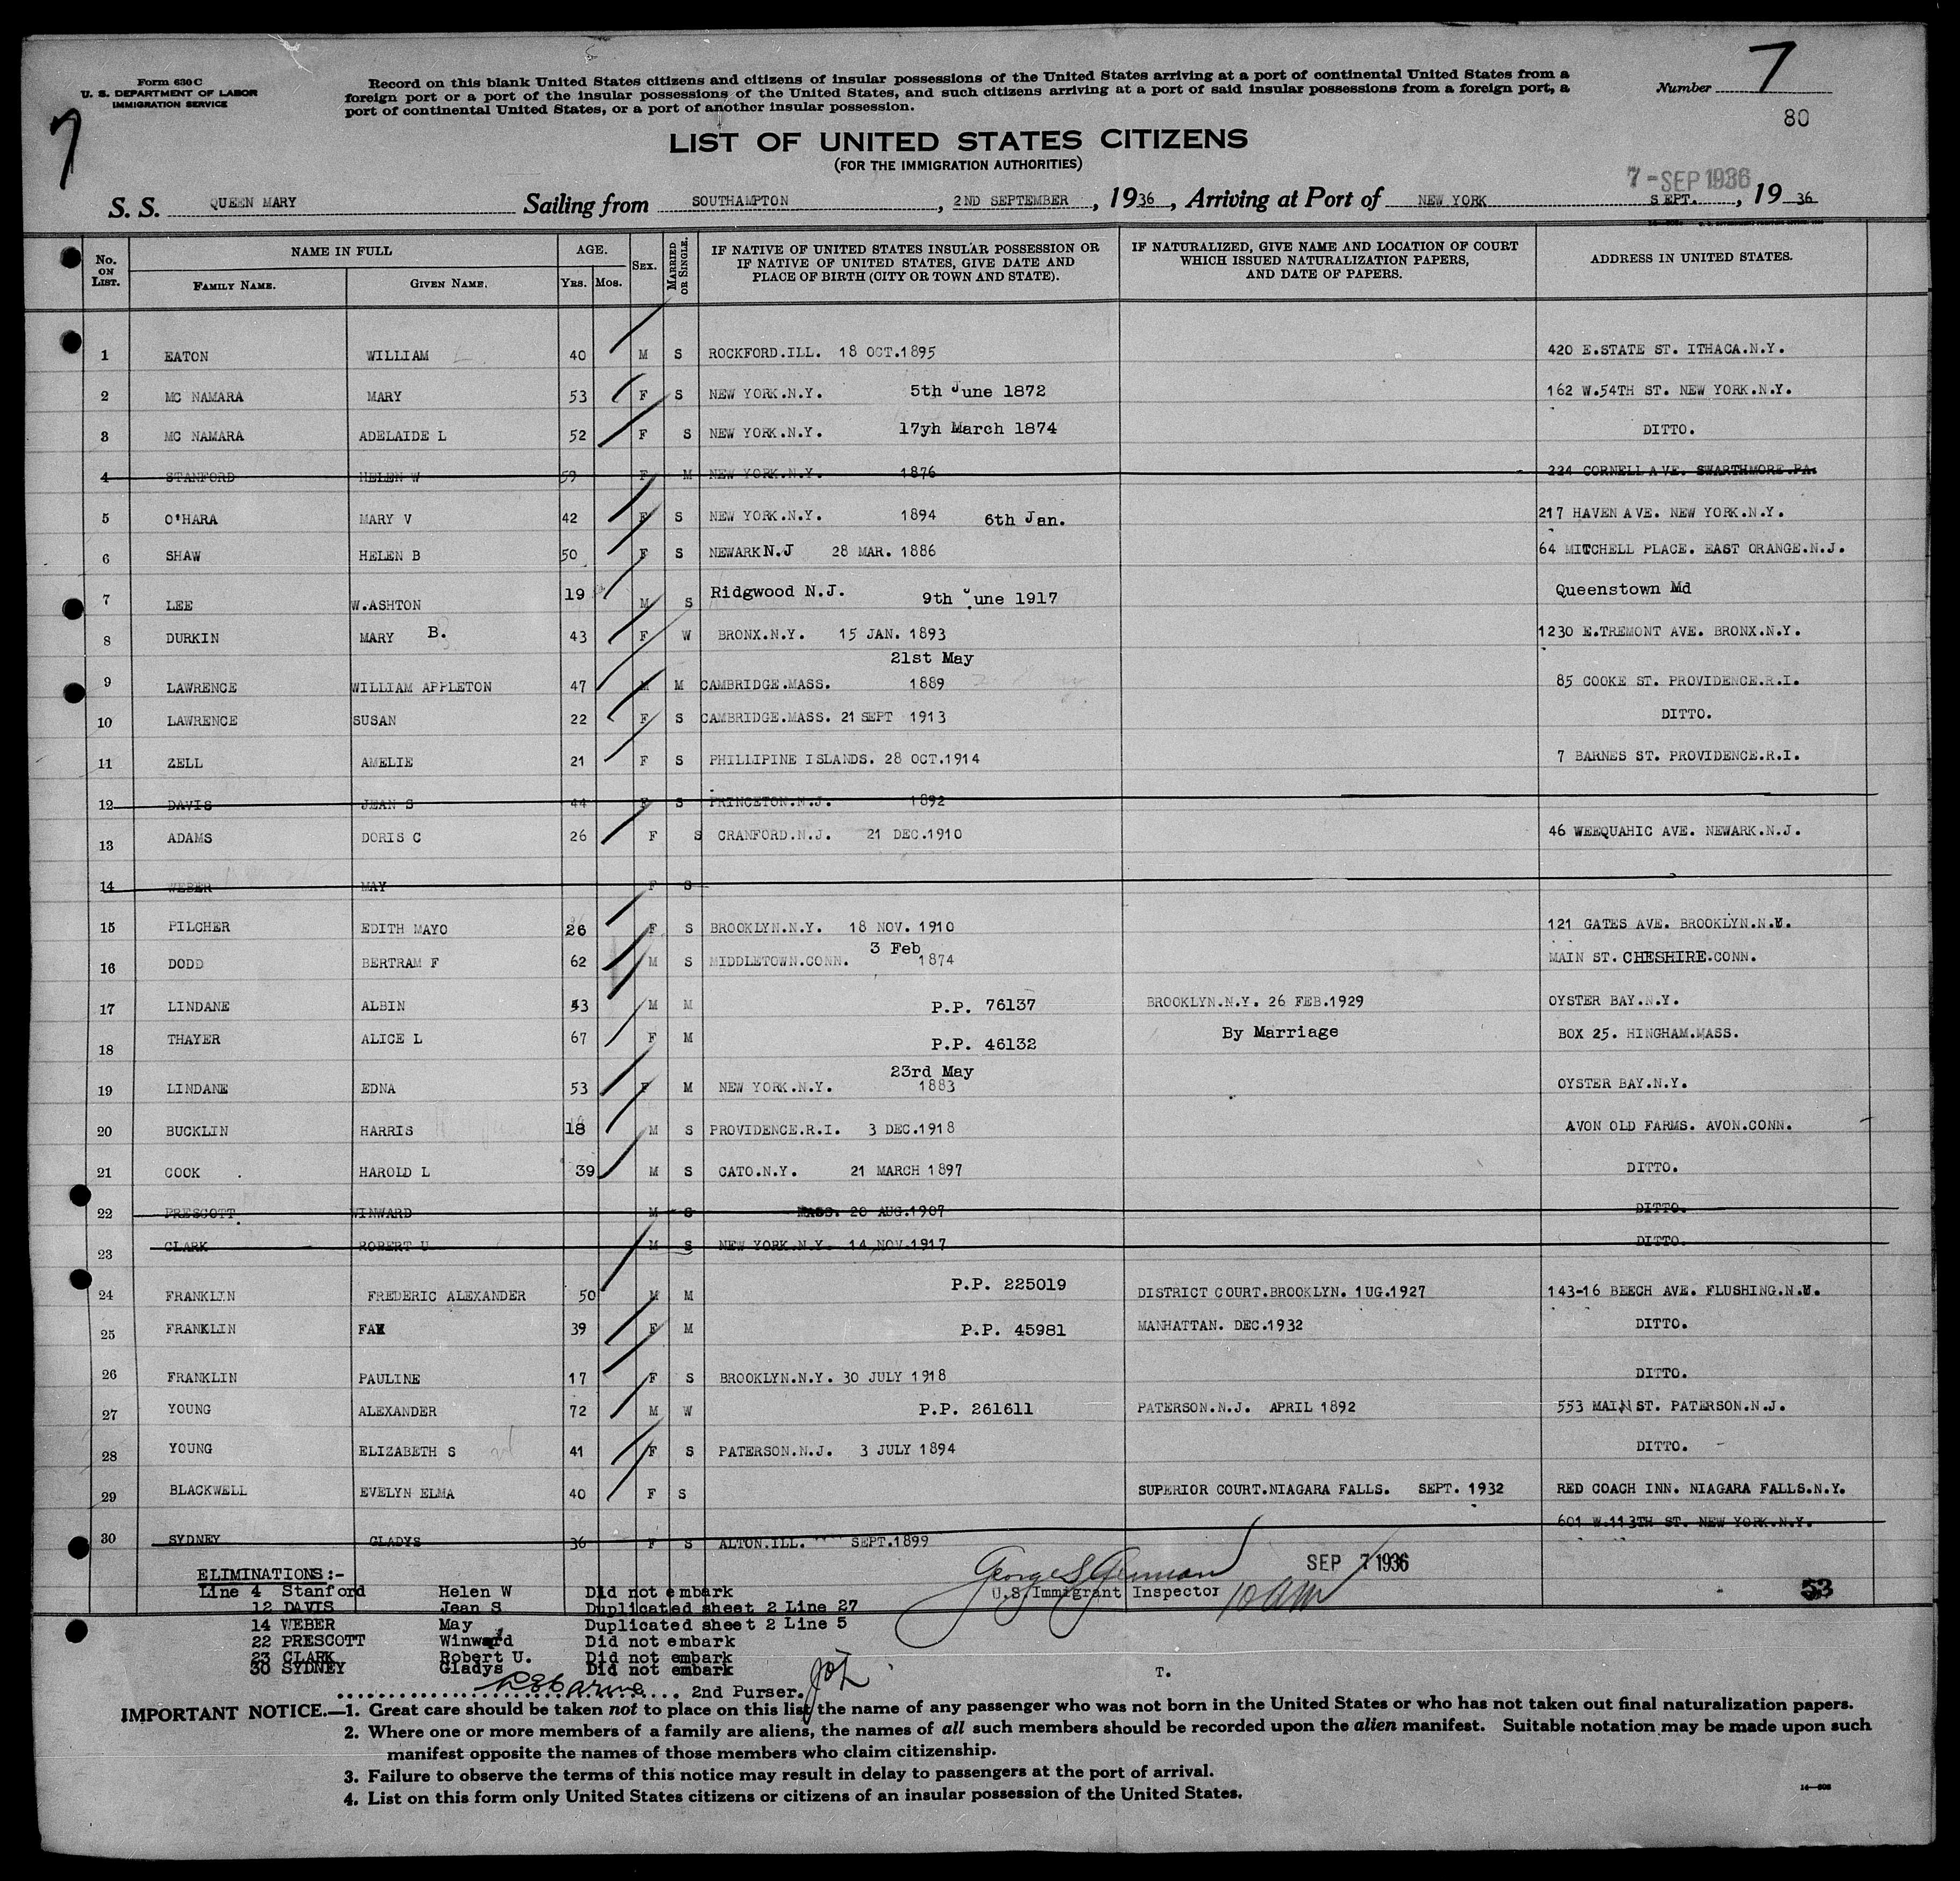 Form 630 C
U. S. DEPARTMENT OF LABOR
IMMIGRATION SERVICE
7
Record on this blank United States citizens and citizens of insular possessions of the United States arriving at a port of continental United States from a
foreign port or a port of the insular possessions of the United States, and such citizens arriving at a port of said insular possessions from a foreign port, a
port of continental United States, or a port of another insular possession.
Number 7
80
LIST OF UNITED STATES CITIZENS
(FOR THE IMMIGRATION AUTHORITIES)
7-SEP 1936
S. S. QUEEN MARY Sailing from SOUTHAMPTON, 2ND SEPTEMBER, 1936, Arriving at Port of NEW YORK SEPT., 1936
No. ON LIST. NAME IN FULL FAMILY NAME. GIVEN NAME. AGE. YRS. MOS. SEX. MARRIED OR SINGLE. IF NATIVE OF UNITED STATES INSULAR POSSESSION OR IF NATIVE OF UNITED STATES, GIVE DATE AND PLACE OF BIRTH (CITY OR TOWN AND STATE). IF NATURALIZED, GIVE NAME AND LOCATION OF COURT WHICH ISSUED NATURALIZATION PAPERS, AND DATE OF PAPERS. ADDRESS IN UNITED STATES.
1 EATON WILLIAM 40 M S ROCKFORD.ILL. 18 OCT.1895 420 E.STATE ST. ITHACA.N.Y.
2 MC NAMARA MARY 53 F S NEW YORK.N.Y. 5th June 1872 162 W.54TH ST. NEW YORK.N.Y.
3 MC NAMARA ADELAIDE L 52 F S NEW YORK.N.Y. 17yh March 1874 DITTO.
4 STANFORD HELEN W 59 F M NEW YORK.N.Y. 1876 224 CORNELL AVE. SWARTHMORE.PA.
5 O'HARA MARY V 42 F S NEW YORK.N.Y. 1894 6th Jan. 217 HAVEN AVE. NEW YORK.N.Y.
6 SHAW HELEN B 50 F S NEWARK N.J 28 MAR. 1886 64 MITCHELL PLACE. EAST ORANGE.N.J.
7 LEE W.ASHTON 19 M S Ridgwood N.J. 9th June 1917 Queenstown Md
8 DURKIN MARY B. 43 F W BRONX.N.Y. 15 JAN. 1893 1230 E.TREMONT AVE. BRONX.N.Y.
21st May
9 LAWRENCE WILLIAM APPLETON 47 M M CAMBRIDGE.MASS. 1889 85 COOKE ST. PROVIDENCE.R.I.
10 LAWRENCE SUSAN 22 F S CAMBRIDGE.MASS. 21 SEPT 1913 DITTO.
11 ZELL AMELIE 21 F S PHILLIPINE ISLANDS. 28 OCT.1914 7 BARNES ST. PROVIDENCE.R.I.
12 DAVIS JEAN S 44 F S PRINCETON.N.J. 1892
13 ADAMS DORIS C 26 F S CRANFORD.N.J. 21 DEC.1910 46 WEEQUAHIC AVE. NEWARK.N.J.
14 WEBER MAY F S
15 PILCHER EDITH MAYO 26 F S BROOKLYN.N.Y. 18 NOV. 1910 121 GATES AVE. BROOKLYN.N.Y.
3 Feb
16 DODD BERTRAM F 62 M S MIDDLETOWN.CONN. 1874 MAIN ST. CHESHIRE.CONN.
17 LINDANE ALBIN 43 M M P.P. 76137 BROOKLYN.N.Y. 26 FEB.1929 OYSTER BAY.N.Y.
18 THAYER ALICE L 67 F M P.P. 46132 By Marriage BOX 25. HINGHAM.MASS.
23rd May
19 LINDANE EDNA 53 F M NEW YORK.N.Y. 1883 OYSTER BAY.N.Y.
20 BUCKLIN HARRIS 18 M S PROVIDENCE.R.I. 3 DEC.1918 AVON OLD FARMS. AVON.CONN.
21 COOK HAROLD L 39 M S CATO.N.Y. 21 MARCH 1897 DITTO.
22 PRESCOTT WINWARD M S MASS. 20 AUG.1907 DITTO.
23 CLARK ROBERT U M S NEW YORK.N.Y. 14 NOV.1917 DITTO.
24 FRANKLIN FREDERIC ALEXANDER 50 M M P.P. 225019 DISTRICT COURT.BROOKLYN. 1UG.1927 143-16 BEECH AVE. FLUSHING.N.Y.
25 FRANKLIN FAY 39 F M P.P. 45981 MANHATTAN. DEC.1932 DITTO.
26 FRANKLIN PAULINE 17 F S BROOKLYN.N.Y. 30 JULY 1918 DITTO.
27 YOUNG ALEXANDER 72 M W P.P. 261611 PATERSON.N.J. APRIL 1892 553 MAIN ST. PATERSON.N.J.
28 YOUNG ELIZABETH S 41 F S PATERSON.N.J. 3 JULY 1894 DITTO.
29 BLACKWELL EVELYN ELMA 40 F S SUPERIOR COURT.NIAGARA FALLS. SEPT. 1932 RED COACH INN. NIAGARA FALLS.N.Y.
30 SYDNEY GLADYS 36 F S ALTON.ILL. SEPT.1899 601 W.113TH ST. NEW YORK.N.Y.
ELIMINATIONS:-
SEP 7 1936
Line 4 Stanford Helen W Did not embark
U.S.Immigrant Inspector 10 am
53
12 DAVIS Jean S Duplicated sheet 2 Line 27
14 WEBER May Duplicated sheet 2 Line 5
22 PRESCOTT Winward Did not embark
23 CLARK Robert U. Did not embark
30 SYDNEY Gladys Did not embark
2nd Purser.
T.
IMPORTANT NOTICE.—1. Great care should be taken not to place on this list the name of any passenger who was not born in the United States or who has not taken out final naturalization papers.
2. Where one or more members of a family are aliens, the names of all such members should be recorded upon the alien manifest. Suitable notation may be made upon such
manifest opposite the names of those members who claim citizenship.
3. Failure to observe the terms of this notice may result in delay to passengers at the port of arrival.
4. List on this form only United States citizens or citizens of an insular possession of the United States.